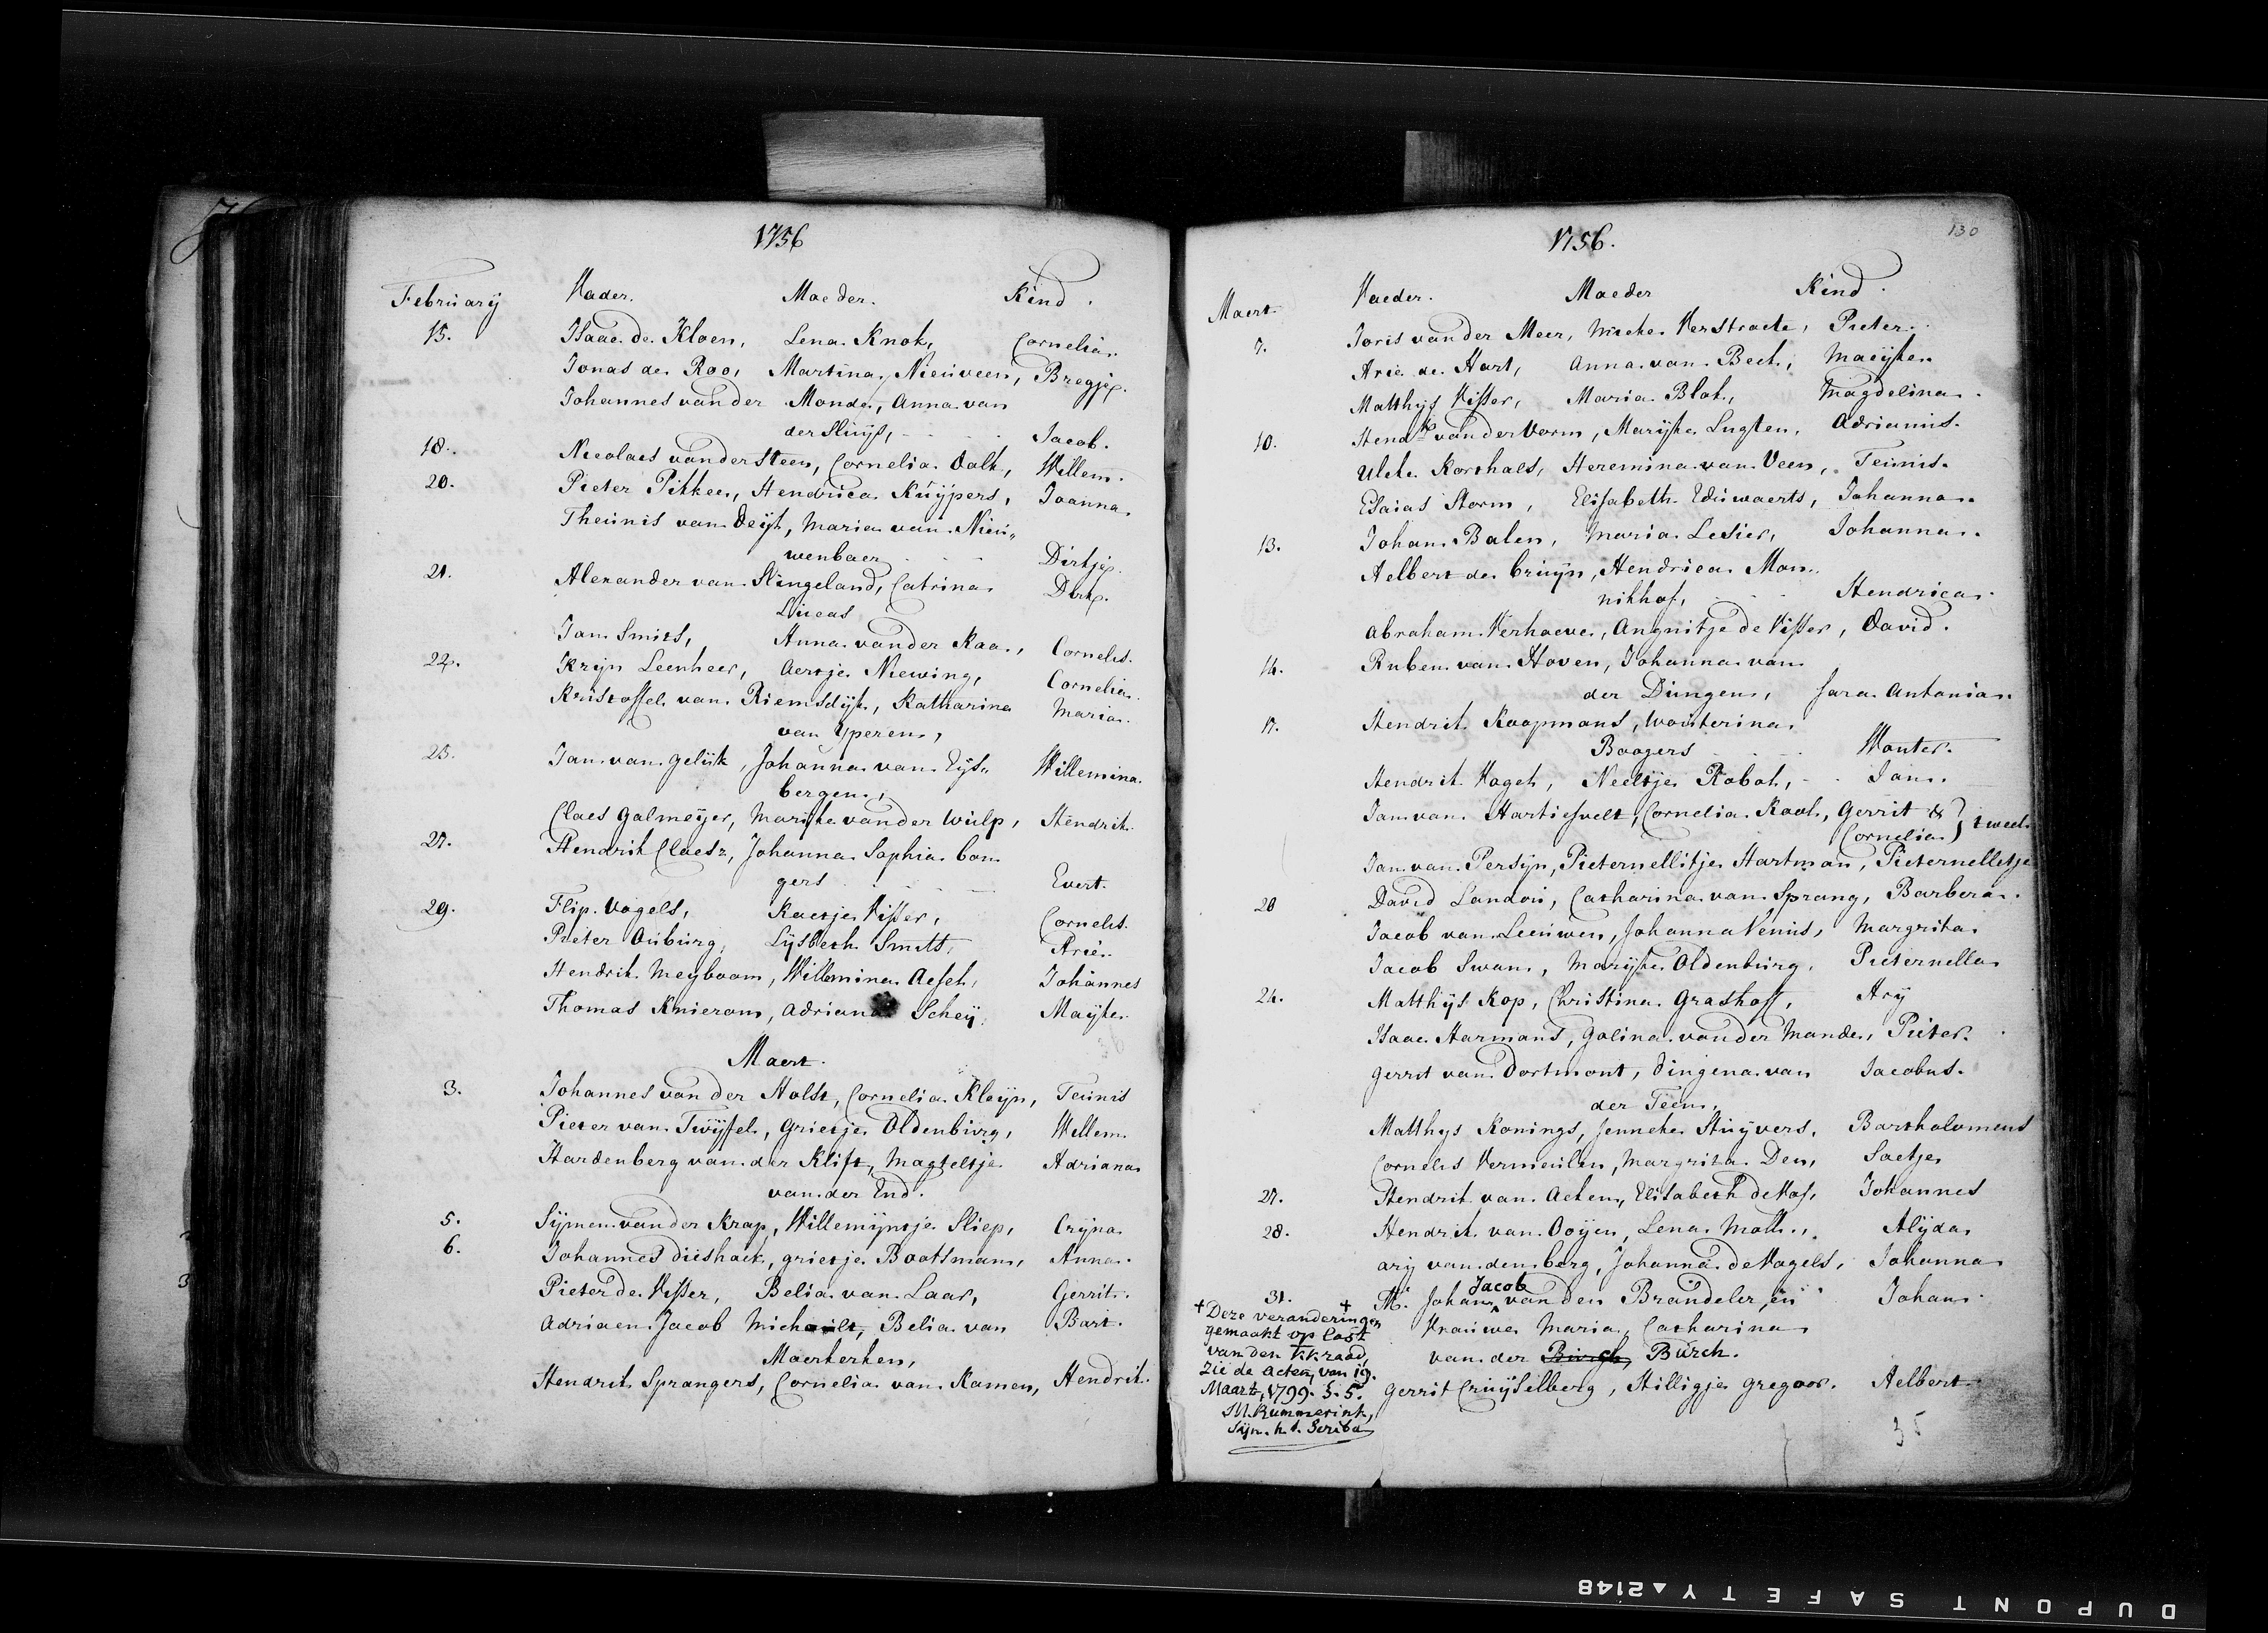 1756
February Vader. Maeder. Kind.
15. Isaac de Kloen, Lena Knok, Cornelia.
Jonas de Roo, Martina Nieuveen, Bregje.
Johannes van der Monde, Anna van
der Sluijs, - - Jacob.
18. Nicolaes van der Steen, Cornelia Valk, Willem.
20. Pieter Pikkee, Hendrica Kuijpers, Joanna.
Theunis van Deijk, Maria van Nieu„
wenbaer - - - Dirkje.
21. Alexander van Slingeland, Catrina Dirk.
Lucas
Jan Smits, Anna van der Kaa, Cornelis.
22. Krijn Leenheer, Aertje Niewing, Cornelia.
Kristoffel van Riemsdijk, Katharina Maria.
van Yperen,
25. Jan van Gelük, Johanna van Eijs„ Willemina.
bergen,
Claes Galmeijer, Marijke van der Wulp, Hendrik.
27. Hendrik Claesz, Johanna Sophia bon
gers - - - Evert.
29. Flip Vogels, Kaetje Visser, Cornelis.
Pieter Ouburg, Lijsbeth Smitt, Arie.
Hendrik Meyboom, Willemina Aesch, Johannes
Thomas Knierom, Adriana Scheij, Maijke.
Maert.
3. Johannes van der Holst, Cornelia Kleijn, Teunis
Pieter van Twijsel, Grietje Oldenburg, Willem.
Hardenberg van der Klift, Magteltje Adriana
van der End.
5. Sijmen van der Krap, Willemijntje Sliep, Crijna
6. Johannes dieshoek, grietje Bootsman, Anna.
Pieter de Visser, Belia van Laar, Gerrit.
Adriaen Jacob Michault, Belia van Bart.
Maerkerken,
Hendrik Sprangers, Cornelia van Kamen, Hendrik.
1756. 130
Maert Vaeder. Maeder Kind.
7. Joris van der Meer, Mieke Verstraete, Pieter.
Arie de Hart, Anna van Beek, Maeijke.
Matthijs Visser, Maria Blok, Magdelina.
10. Hendk van der Vorm, Marijke Lugten, Adrianus.
Ulek Korthals, Heremina van Veen, Teunis.
Esaias Storm, Elisabeth Eduwaerts, Johanna.
13. Johan Balen, Maria Lesier, Johanna.
Aelbert de bruijn, Hendrica Mon„
nikhof, - - - Hendrica.
Abraham Verhoeve, Angnitje de Visser, David.
14. Ruben van Hoven, Johanna van
der Dungen, Sara Antonia.
17. Hendrik Koopmans, Wouterina
Boogers - - - Wouter.
Hendrik Vogel, Neeltje Robol, - - Jan.
Jan van Hartiesvelt, Cornelia Kool, Gerrit &
Cornelia } tweel.
Jan van Persijn, Pieternellitje Hartman, Pieternelletje
20 David Landoû, Catharina van Sprang, Barbera.
Jacob van Leeuwen, Johanna Venus, Margrita
Jacob Swan, Marijke Oldenburg, Pieternella
24. Matthijs Kop, Christina Grashoff, Arij
Isaac Harmans, Galina van der Mande, Pieter.
Gerrit van Dortmont, Dingena van Jacobus.
der Teem,
Matthys Konings, Jenneke Stuijvers, Bartholomeus
Cornelis Vermeulen, Margrita Den, Saetje
27. Hendrik van Aeken, Elisabeth de Vos, Johannes
28. Hendrik van Ooijen, Lena Moll, Alijda
arij van den berg, Johanna de Vogels, Johanna
Jacob
31. + Johan van den Brandeler, en Johan.
Vrouwe Maria Catharina
van der Burch, Bürch.
Gerrit Cruijselberg, Hilligje Gregoor. Aelbert.
+ Deze veranderingen
gemaakt op last
van den kkraad,
zie de acten, van 19.
Maart, 1799. §. 5.
M. Kummerink,
Sijn. h. t. Scriba
35
DUPONT SAFETY▲2148